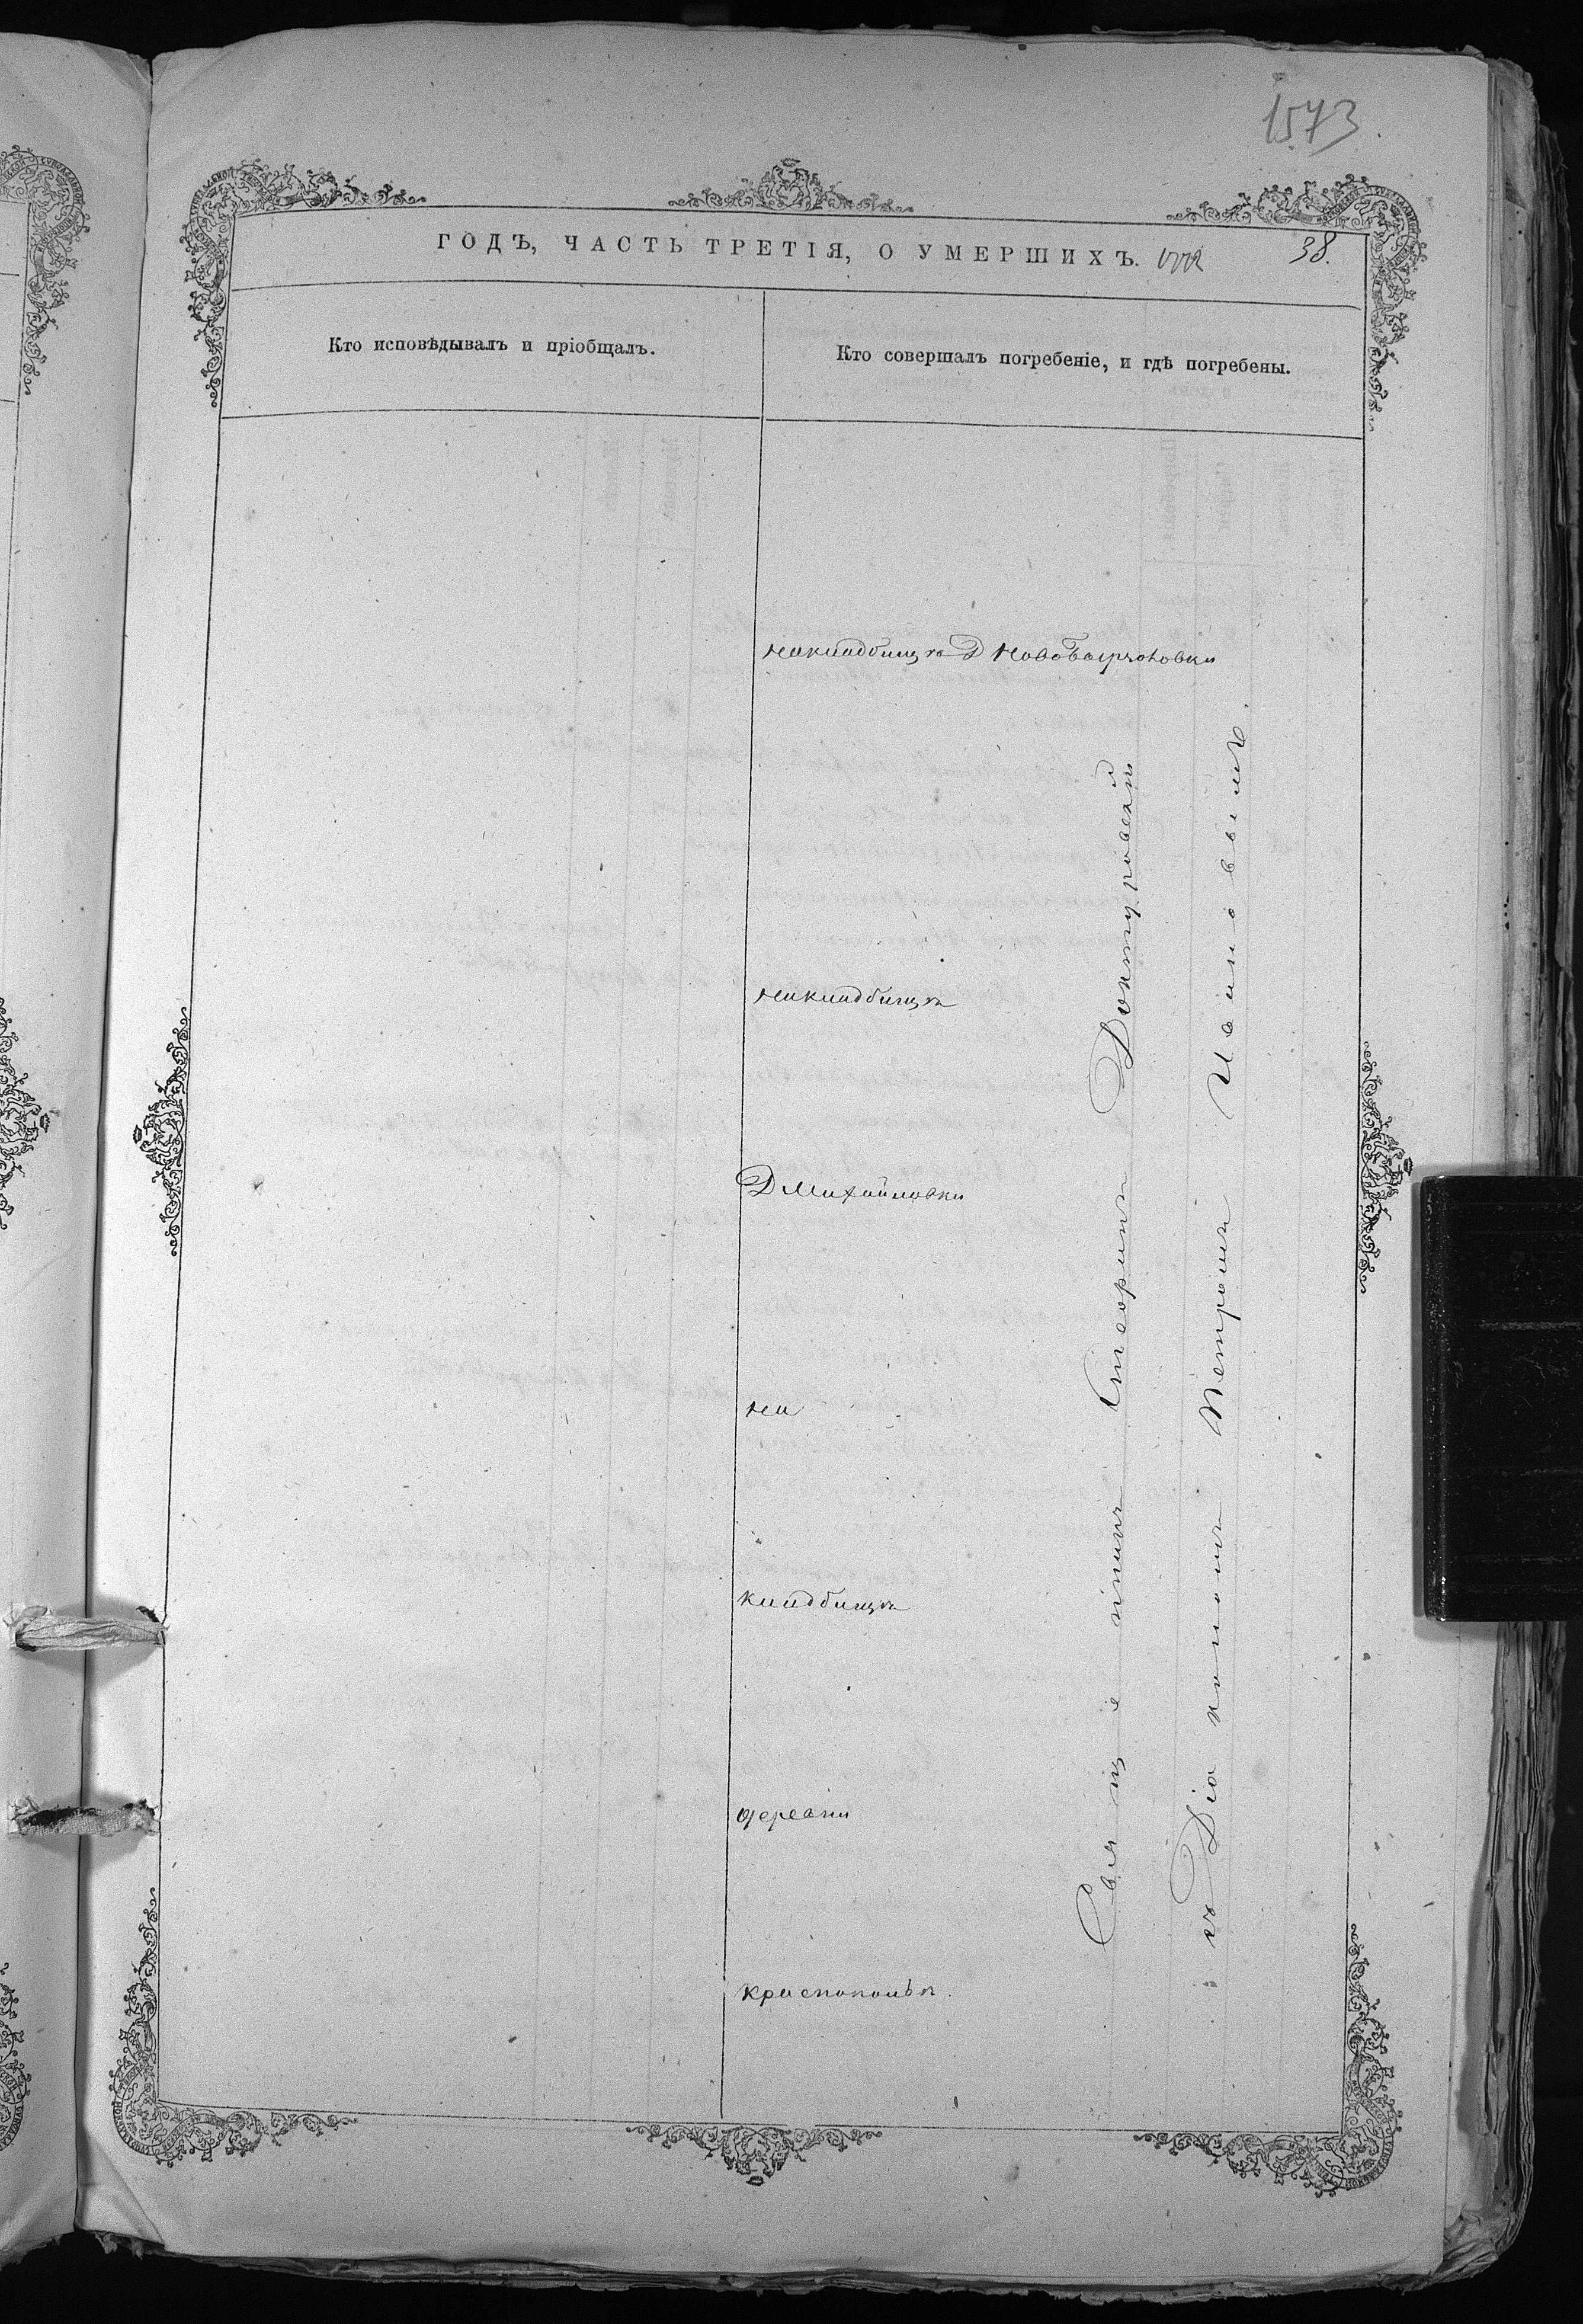 1573
ГОДЪ, ЧАСТЬ ТРЕТІЯ, О УМЕРШИХЪ.
38.
Кто исповѣдывалъ и пріобщалъ.
Кто совершалъ погребеніе, и гдѣ погребены.
на кладбищѣ Д
на кладбищѣ
Д Михайловки
на
кладбищѣ
деревни
Краснополья.
Священникъ Доктуровскій
съ Діакономъ Петромъ Ивановымъ.